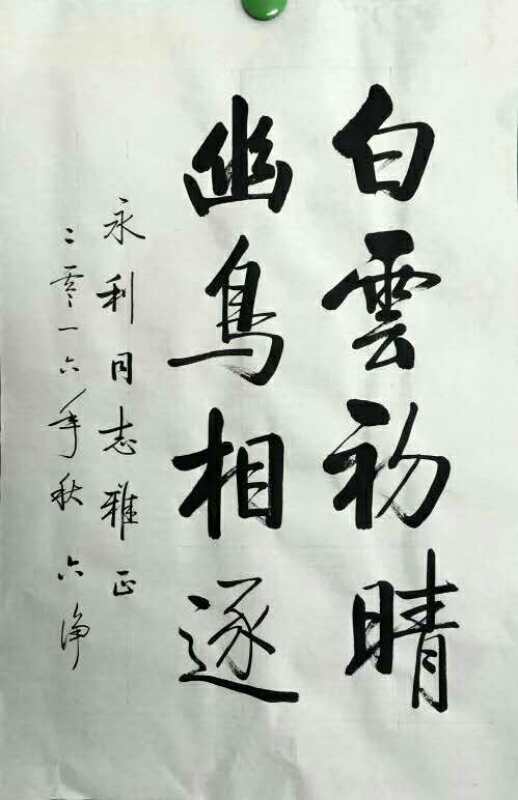 白雲初晴
幽鳥相逐
永利同志雅正
二零一六年秋 六净